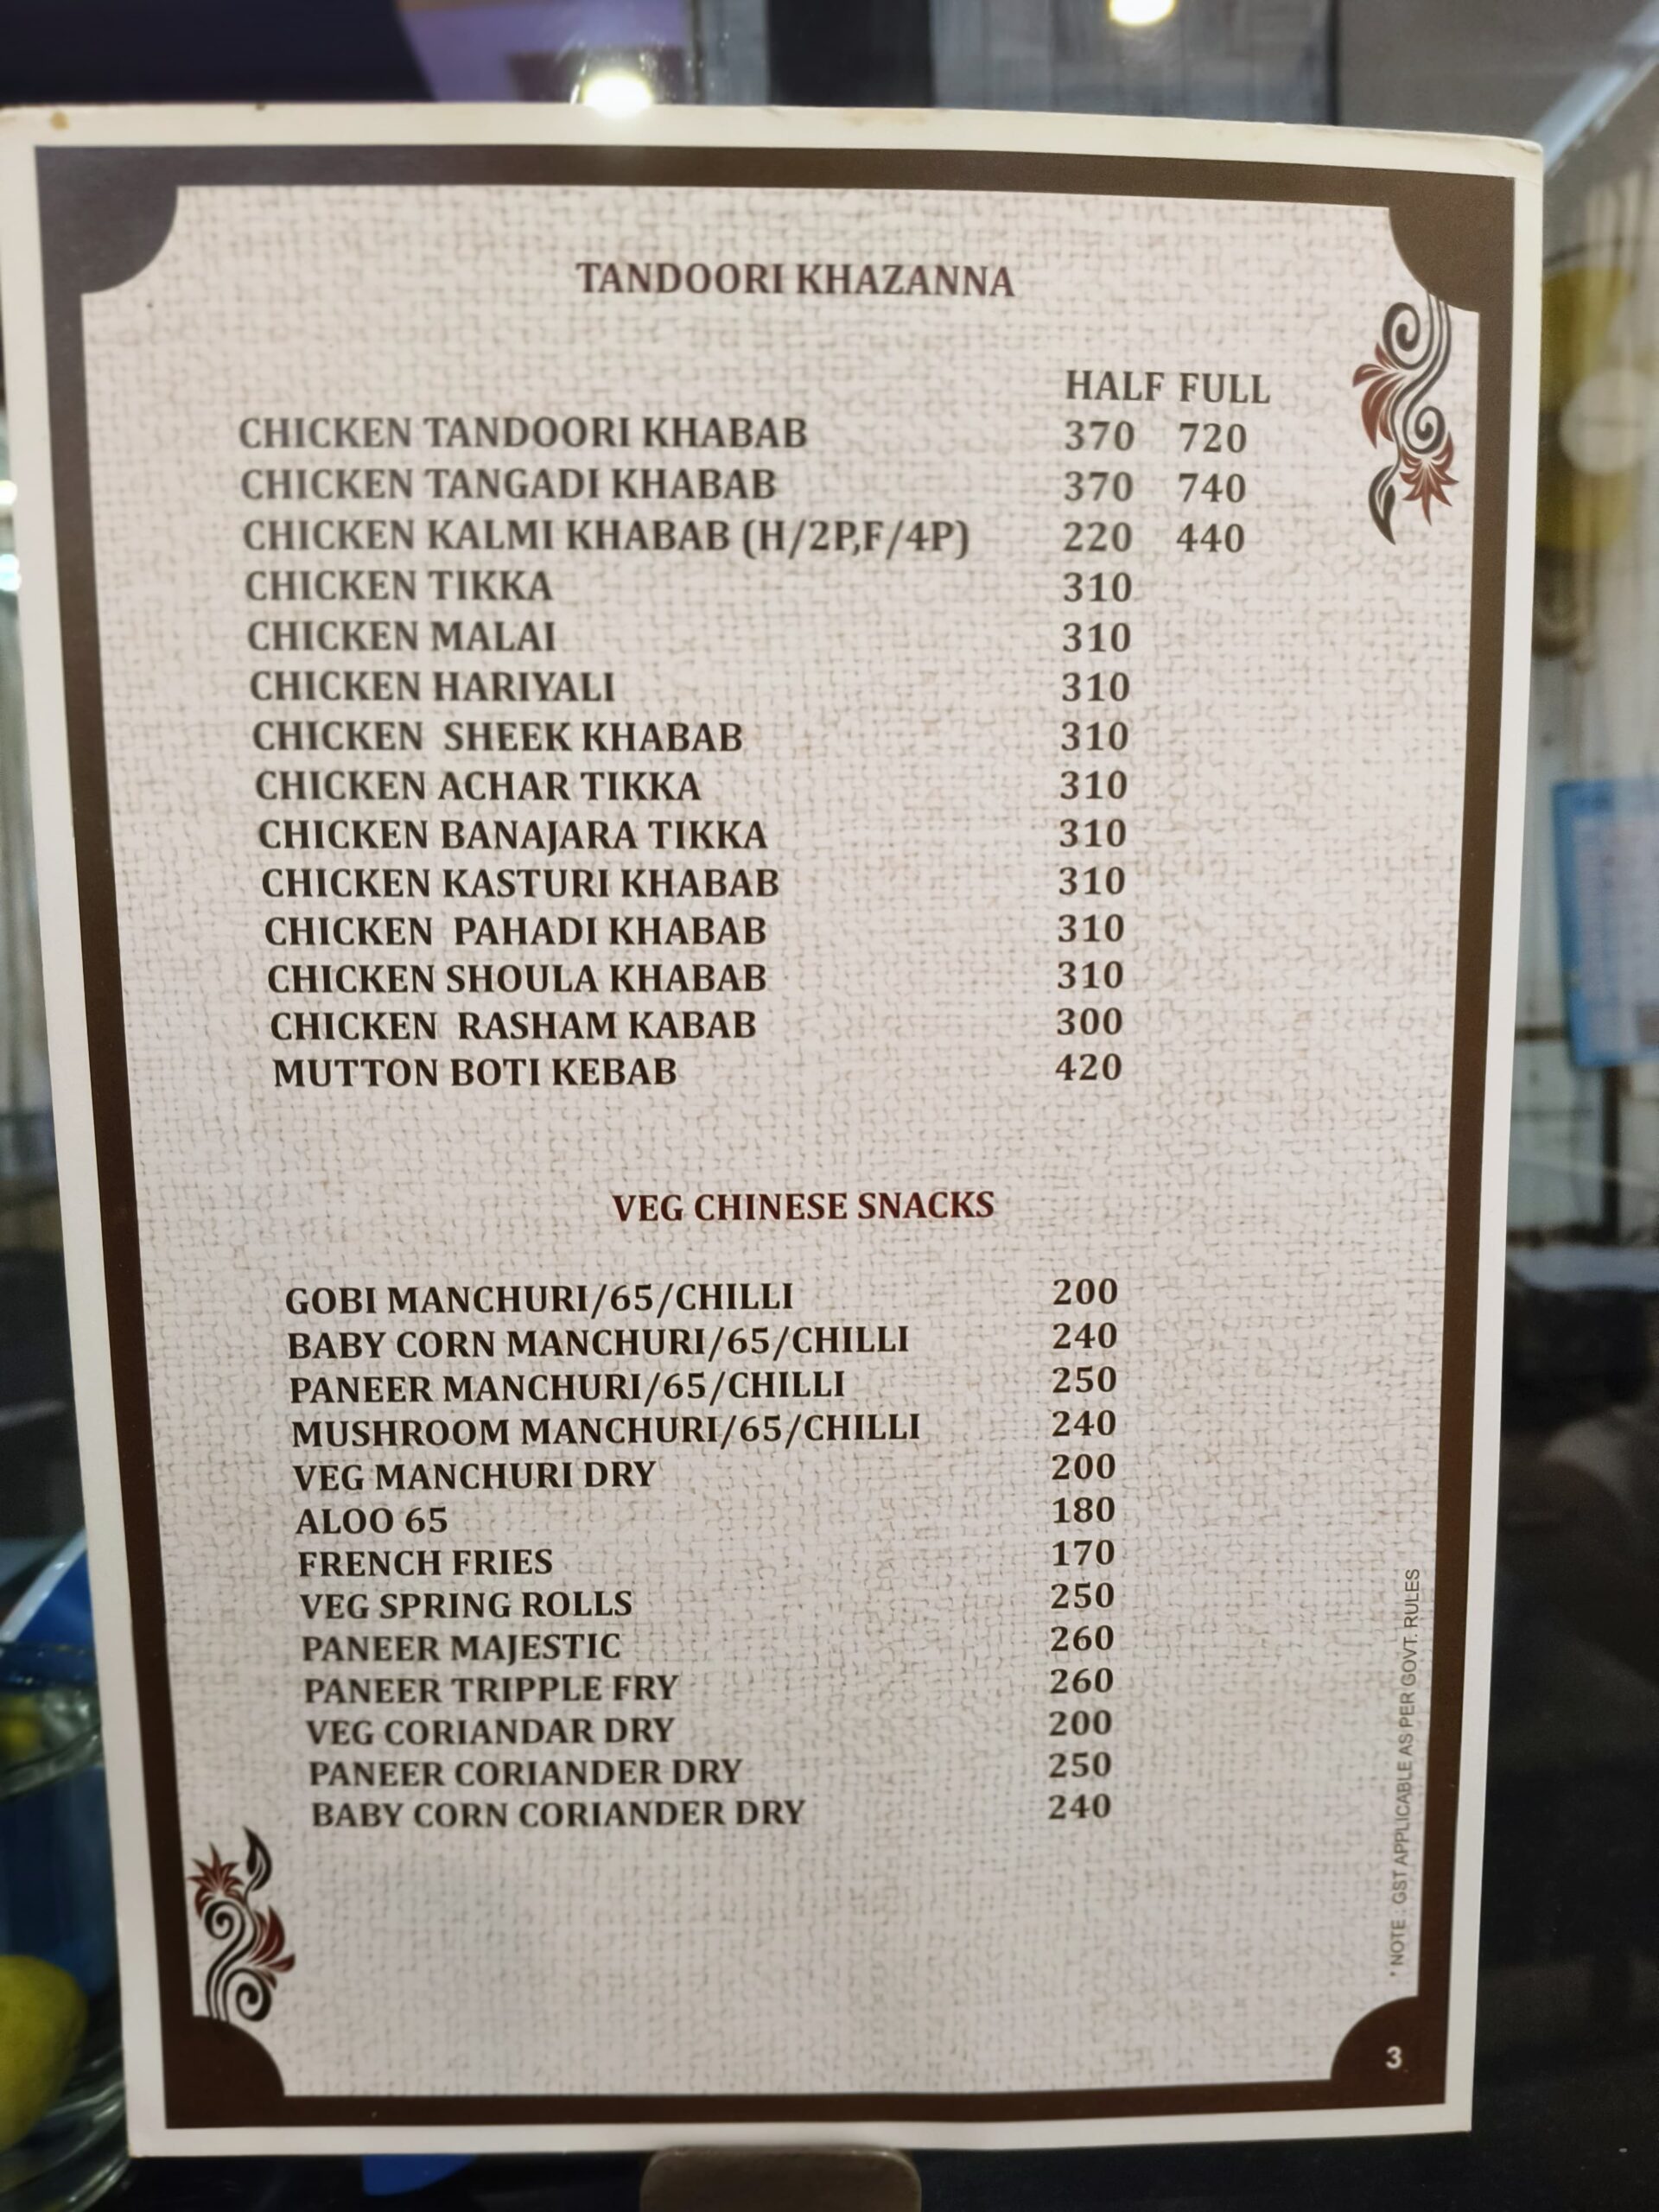 TANDOORI KHAZANNA
HALF FULL
CHICKEN TANDOORI KHABAB 370 720
CHICKEN TANGADI KHABAB 370 740
CHICKEN KALMI KHABAB (H/2P,F/4P) 220 440
CHICKEN TIKKA 310
CHICKEN MALAI 310
CHICKEN HARIYALI 310
CHICKEN SHEEK KHABAB 310
CHICKEN ACHAR TIKKA 310
CHICKEN BANAJARA TIKKA 310
CHICKEN KASTURI KHABAB 310
CHICKEN PAHADI KHABAB 310
CHICKEN SHOULA KHABAB 310
CHICKEN RASHAM KABAB 300
MUTTON BOTI KEBAB 420
VEG CHINESE SNACKS
GOBI MANCHURI/65/CHILLI 200
BABY CORN MANCHURI/65/CHILLI 240
PANEER MANCHURI/65/CHILLI 250
MUSHROOM MANCHURI/65/CHILLI 240
VEG MANCHURI DRY 200
ALOO 65 180
FRENCH FRIES 170
VEG SPRING ROLLS 250
PANEER MAJESTIC 260
PANEER TRIPPLE FRY 260
VEG CORIANDAR DRY 200
PANEER CORIANDER DRY 250
BABY CORN CORIANDER DRY 240
* NOTE : GST APPLICABLE AS PER GOVT. RULES
3